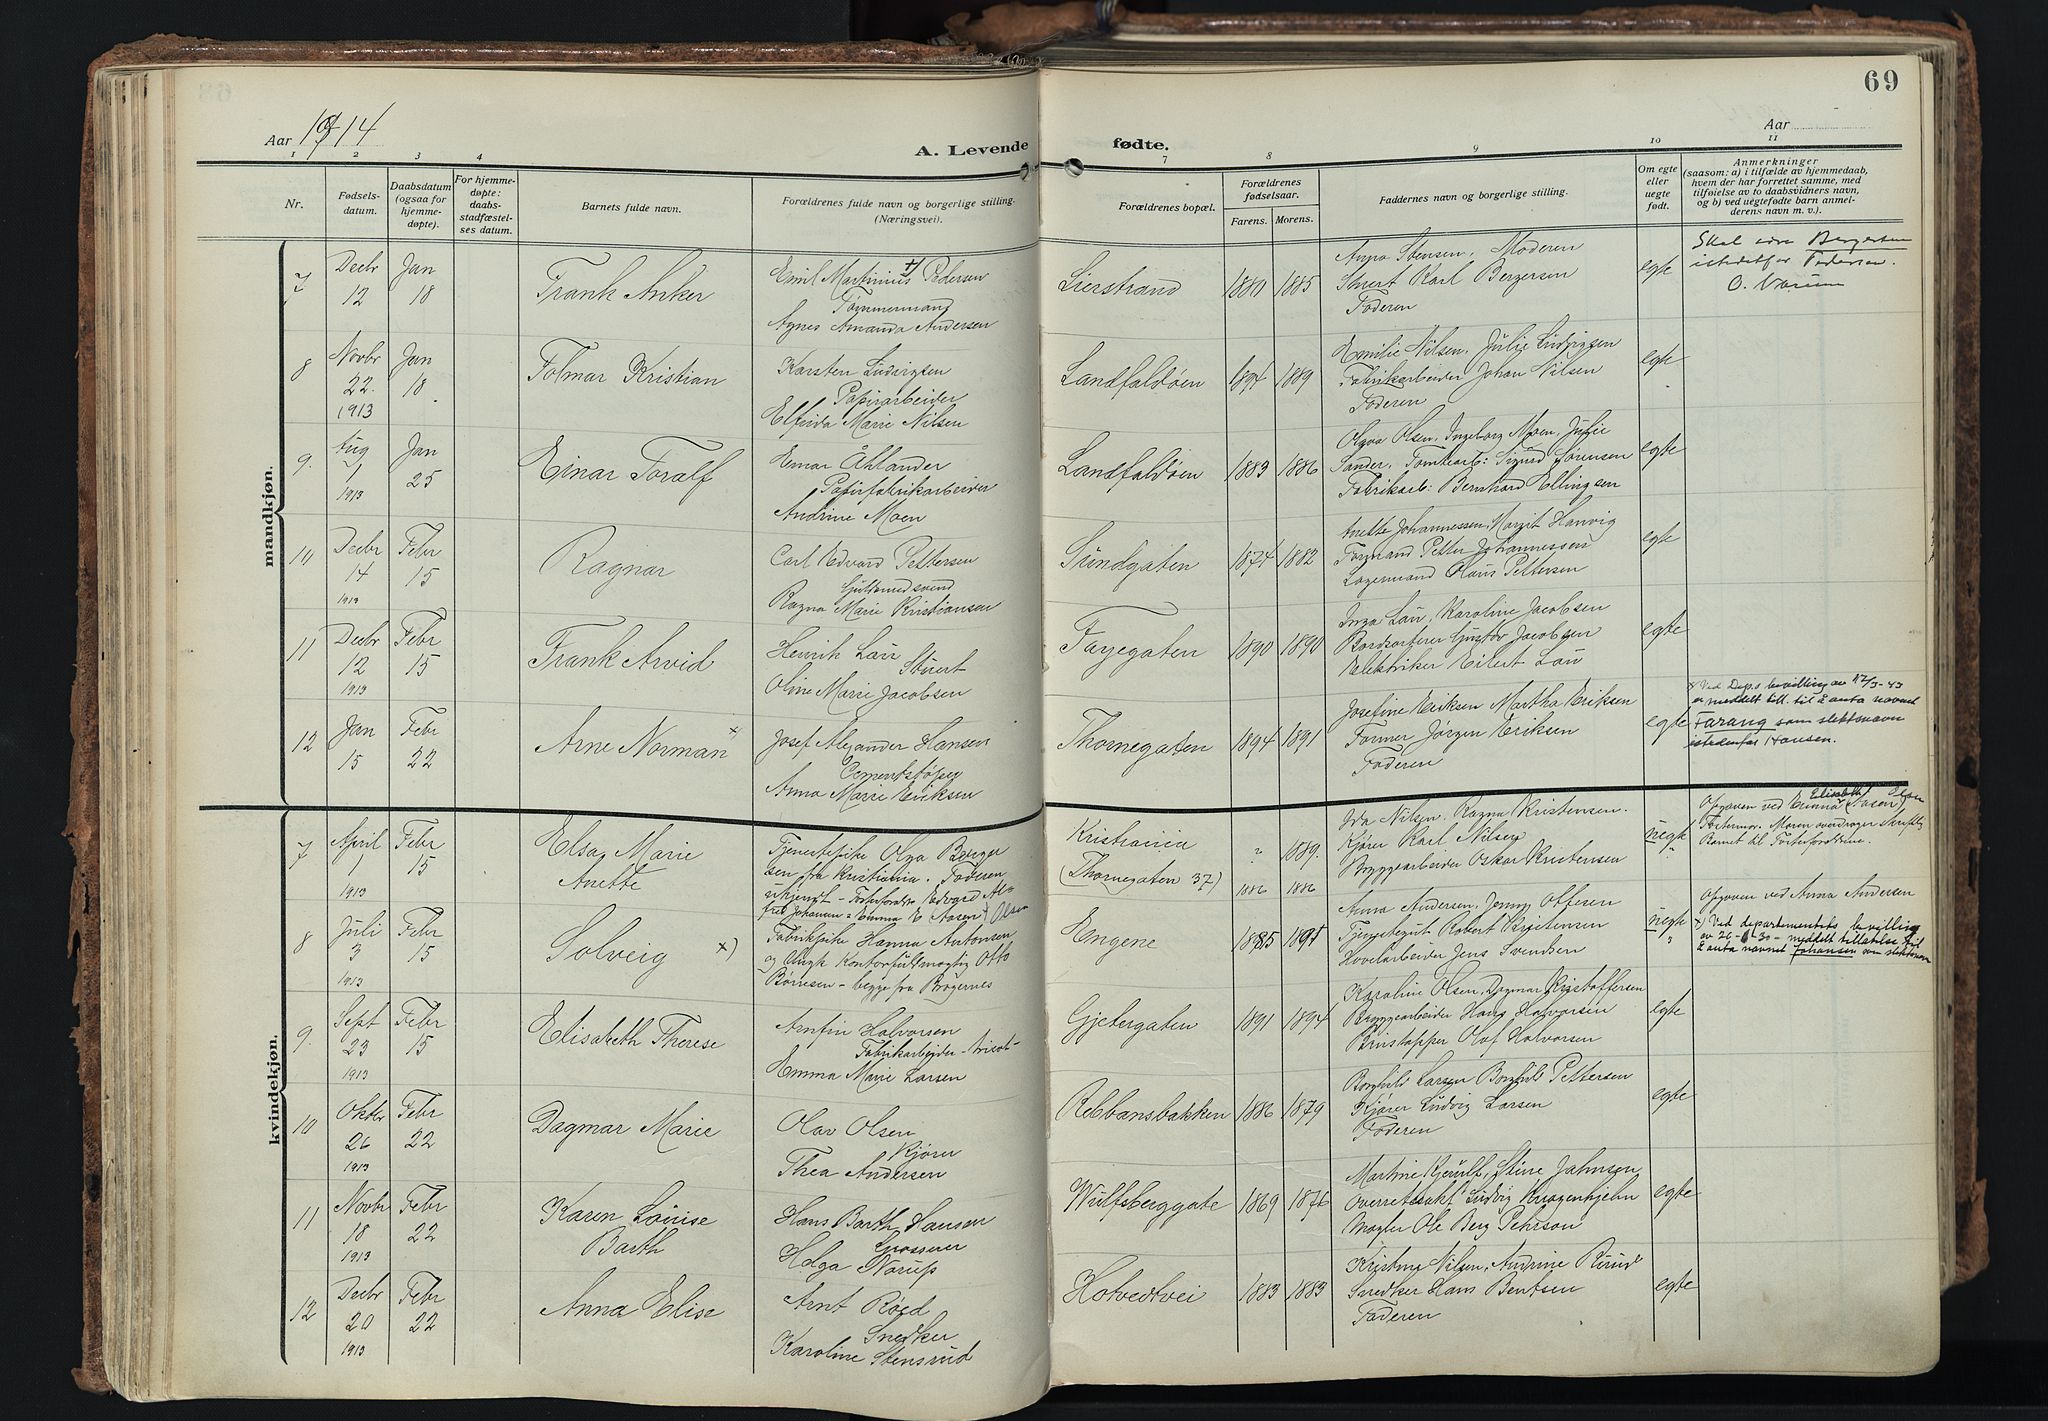 69
Aar 1914
Aar
A. Levende fødte.
1 2 3 4 7 8 9 10 11
Nr.
Fødsels-
datum.
Daabsdatum
(ogsaa for
hjemme-
døpte).
For hjemme-
døpte:
daabs-
stadfæstel-
ses datum.
Barnets fulde navn.
Forældrenes fulde navn og borgerlige stilling.
(Næringsvei).
Forældrenes bopæl.
Forældrenes
fødselsaar.
Farens. Morens.
Faddernes navn og borgerlige stilling.
Om egte
eller
uegte
født.
Anmerkninger
(saasom: a) i tilfælde av hjemmedaab,
hvem der har forrettet samme, med
tilføielse av to daabsvidners navn,
og b) ved uegtefødte barn anmel-
derens navn m. v.).
mandkjøn.
7
Decbr
12
Jan
18
Frank Anker
Emil Martinius +) Pedersen
Tømmermand
Agnes Amanda Andersen
Lierstrand
1880 1885
Anna Stensen, Moderen
Stuert Karl Bergersen
Faderen
egte
Skal være Bergersen
istedetfor Pedersen.
8
Novbr
22
1913
Jan
18
Folmar Kristian
Karsten Ludvigsen
Papirarbeider
Elfrida Marie Nilsen
Landfaldøen
1891 1889
Emilie Nilsen, Julie Ludvigsen
Fabrikarbeider Johan Nilsen
Faderen
egte
9.
Aug
1
1913
Jan
25
Einar Toralf
Einar Åhlander
Papirfabrikarbeider
Andrine Moen
Landfaldøen
1883 1886
Olga Olsen, Ingeborg Moen, Julie
Sander, Tomtearb: Sigurd Sørensen
Fabrikarb: Bernhard Ellingsen
egte
10
Decbr
14
1913
Febr
15
Ragnar
Carl Edvard Pettersen
Ragna Marie Kristiansen
Sundgaten
1874 1882
Anette Johannessen, Margit Hanvig
Formand Petter Johannessen
Lagermand Olaus Pettersen
egte
11
Decbr
12
1913
Febr
15
Frank Arvid
Henrik Lau
Stuert
Oline Marie Jacobsen
Fayegaten
1890 1890
Inga Lau, Karoline Jacobsen
Bordsorterer Gustav Jacobsen
Elektriker Eilert Lau
egte
12
Jan
15
Febr
22
Arne Norman x
Josef Alexander Hansen
Cementstøper
Anna Marie Eriksen
Thornegaten
1894 1891
Josefine Eriksen Martha Eriksen
Former Jørgen Eriksen
Faderen
egte
x Ved Dep.s bevilling av 17/3-43
er meddelt till. til å anta navnet
Farang som slektsnavn
istedenfor Hansen.
kvindekjøn.
7
April
1
1913
Febr
15
Elsa Marie
Anette
Tjenestepike Olga Berger
sen fra Kristiania. Faderen
ukjendt - Fosterforældre Edvard Al-
fred Johansen & Emma E Aasen Olsen
Kristiania
(Thornegaten 37)
" 1889.
1886 1886
Ida Nilsen, Ragna Kristensen.
Kjører Karl Nilsen
Bryggearbeider Oskar Kristensen
uegte
"
Opgaven ved Emma Elisabeth Aasen) Olsen
Fostermor. Moren overdrager skriftlig
Barnet til Fosterforældrene.
8
Juli
3
1913
Febr
15
Solveig x)
Fabrikpike Hanna Antonsen
og Ungk Kontorfuldmægtig Otto
Børresen - begge fra Bragernes
Engene
1885 1895
Anna Andersen, Jenny Ottesen
Tjenestegut Robert Kristensen
Høvelarbeider Jens Svendsen
uegte
"
Opgaven ved Anna Andersen
x) Ved departementets bevilling
av 26- - 30 - meddelt tillatelse til
å anta navnet Johansen som slektsnavn
9.
Sept
23
1913
Febr
15
Elisabeth Therese
Arnfin Halvorsen
Fabrikarbeider
Emma Marie Larsen
Gjetergaten
1891 1894
Karoline Olsen, Dagmar Kristoffersen
Bryggearbeider Hans Halvorsen
Olaf Halvorsen
egte
10
Oktbr
26
1913
Febr
22
Dagmar Marie
Olav Olsen
Kjører
Thea Andersen
Rebbansbakken
1886 1879
Borghild Larsen Borghild Pettersen
Kjører Ludvig Larsen
Faderen
egte
11
Novbr
18
1913
Febr
22
Karen Louise
Barth
Hans Barth Hansen
Grosserer
Helga Nærup
Wulfsberggate
1869 1876
Martine Kjerulf, Stine Jahnsen
Overretssakf Ludvig Knagenhjelm
Mægler Ole Berg Pehrson
egte
12
Decbr
20
1913
Febr
22
Anna Elise
Arnt Røed
Snedker
Karoline Stensrud
Hotvedtvei
1883 1883
Kristine Nilsen, Andrine Ruud
Snedker Hans Bentsen
Faderen
egte